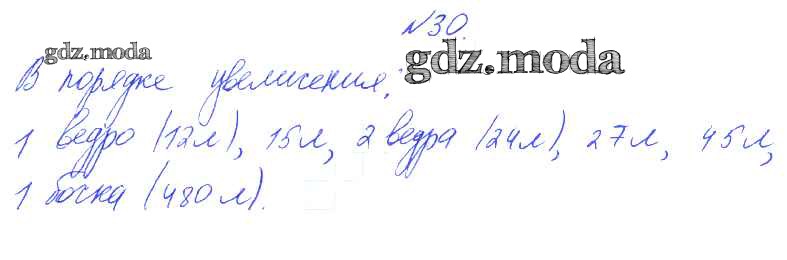 №30.
gdz.moda
gdz.moda
В порядке увеличения:
1 ведро (12л), 15л, 2 ведра (24л), 27л, 45л,
1 бочка (480л).